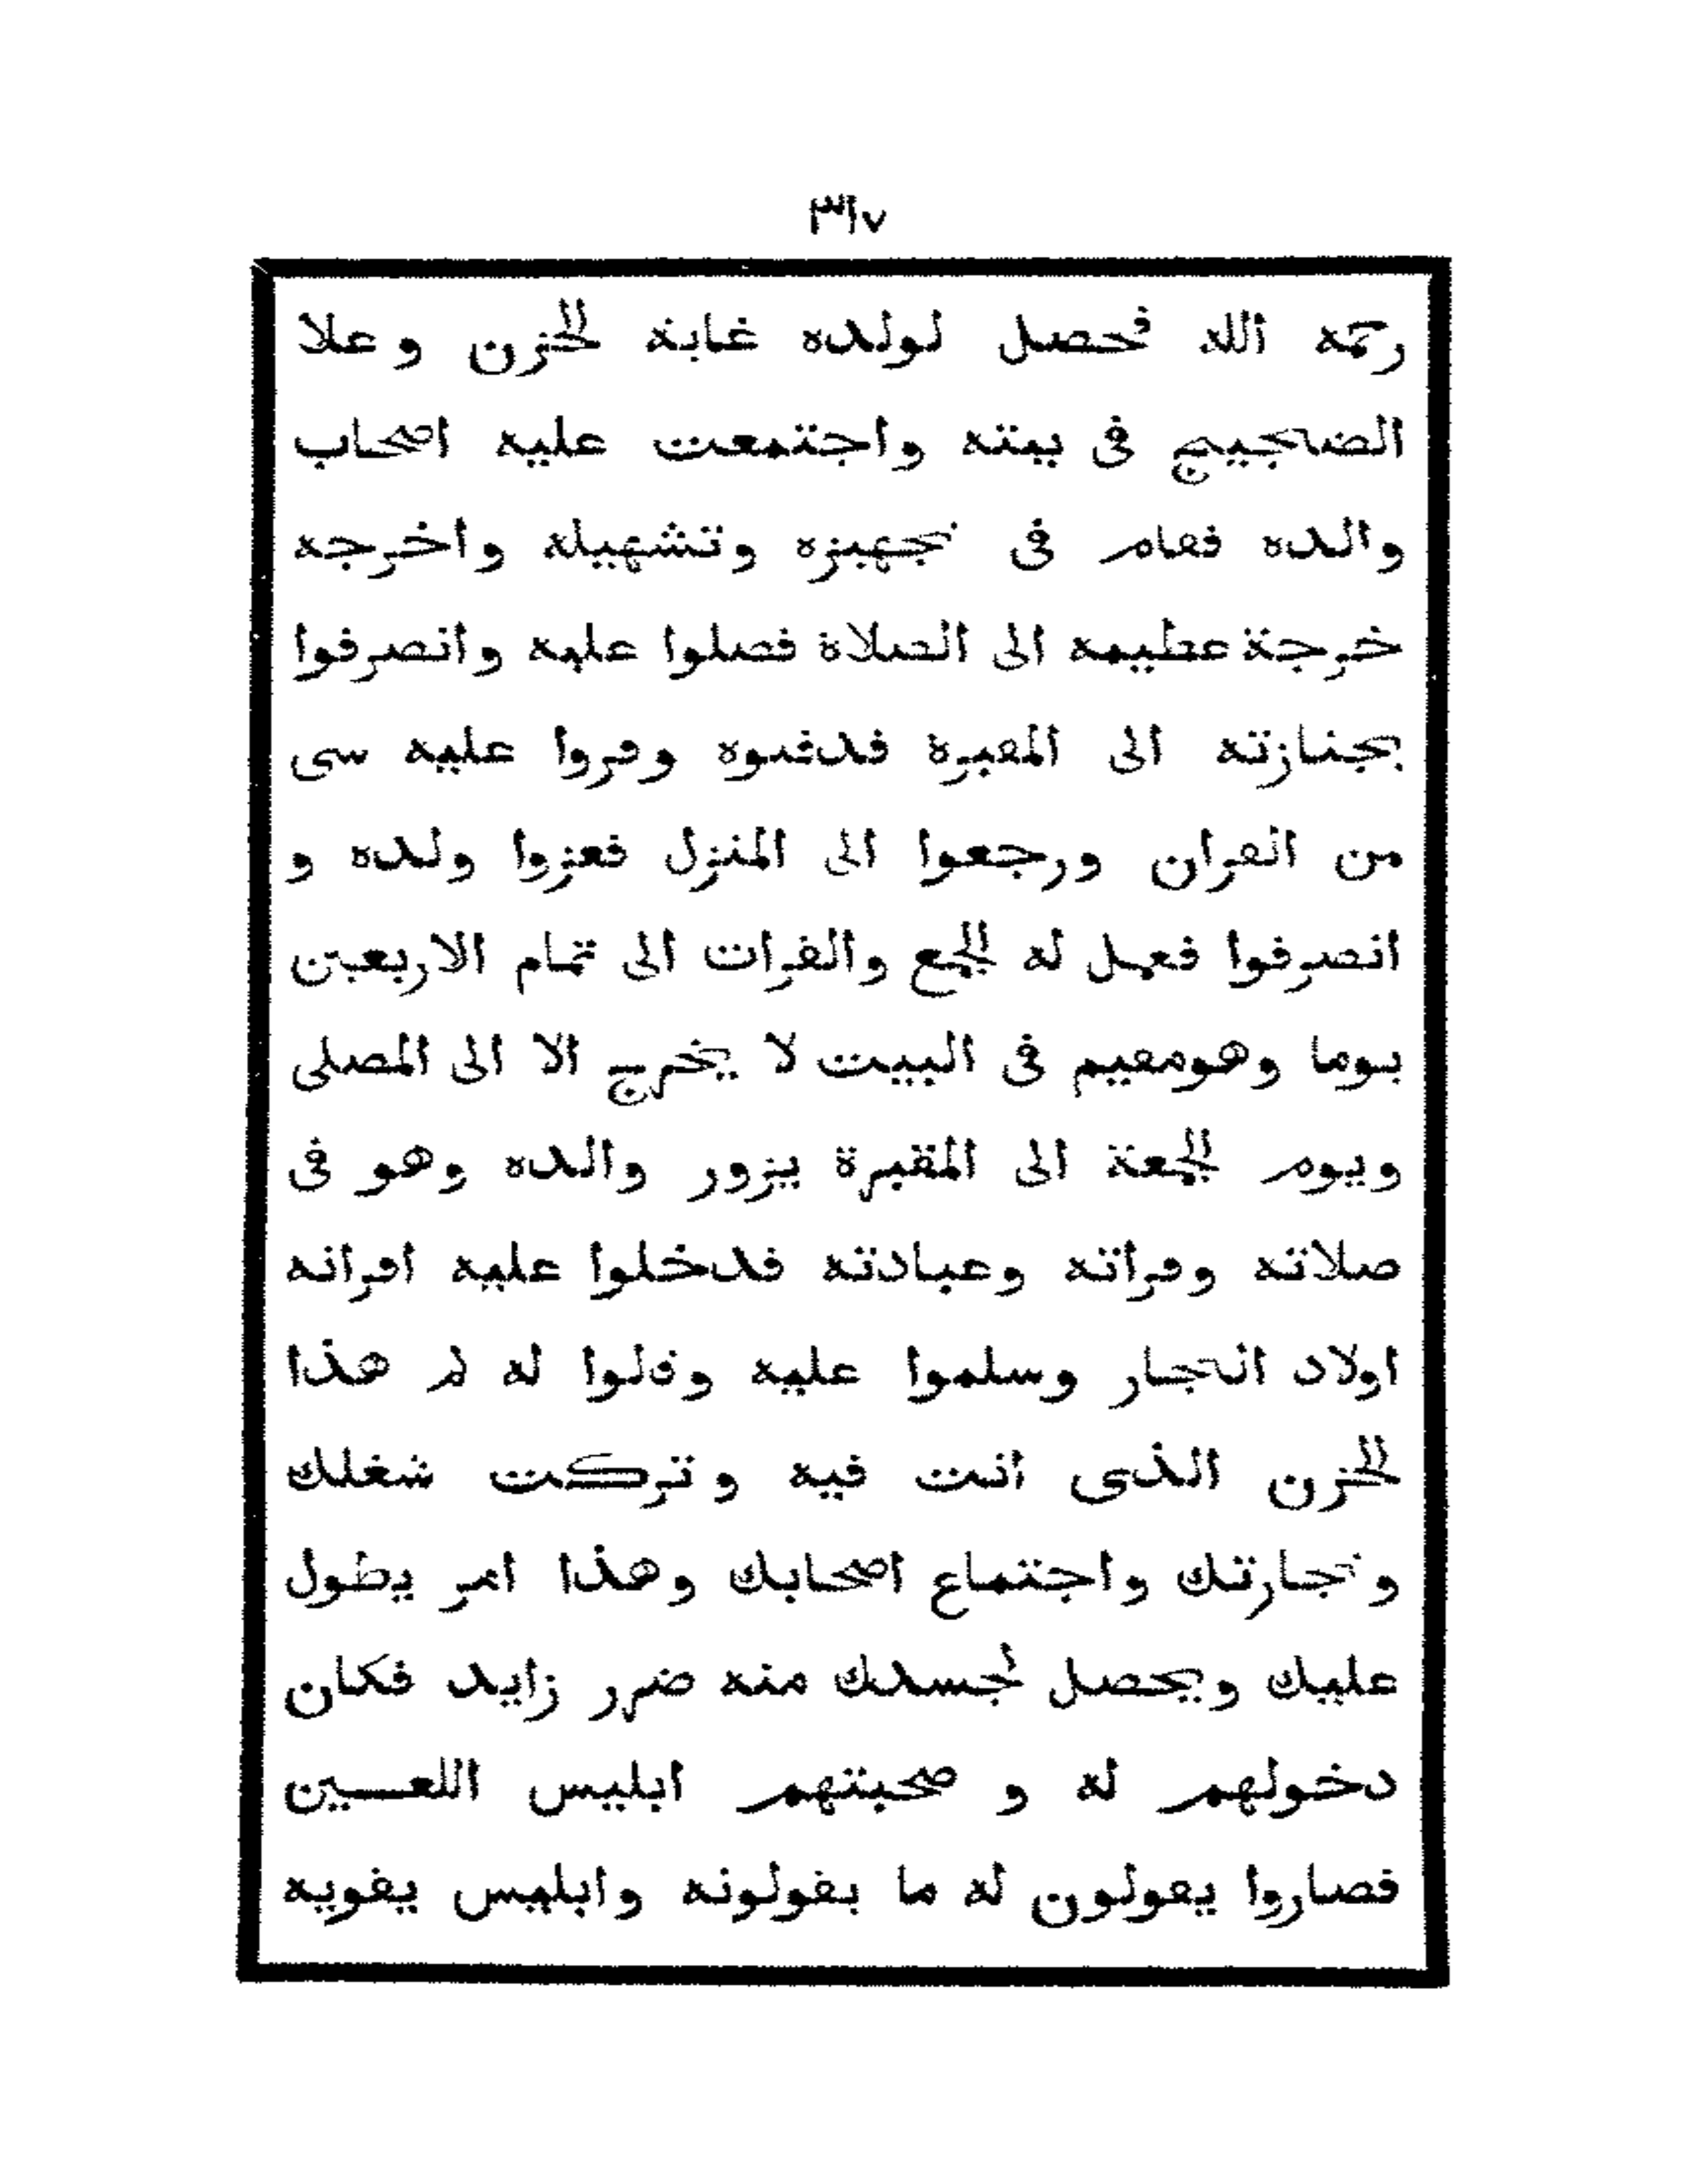 ٣١٧
رحمه الله فحصل لولده غاية الحزن وعلا
الضجيج فى بيته واجتمعت عليه اصحاب
والده فقام فى تجهيزه وتشهيله واخرجه
خرجة عظيمه الى الصلاة فصلوا عليه وانصرفوا
بجنازته الى المقبرة فدفنوه وقروا عليه سى
من القران ورجعوا الى المنزل فعزوا ولده و
انصرفوا فعمل له الجمع والقرات الى تمام الاربعين
يوما وهومقيم فى البيت لا يخرج الا الى المصلى
ويوم الجمعة الى المقبرة يزور والده وهو فى
صلاته وقراته وعبادته فدخلوا عليه اقرانه
اولاد التجار وسلموا عليه وقلوا له لم هذا
الحزن الذى انت فيه وتركت شغلك
وتجارتك واجتماع اصحابك وهذا امر يطول
عليك ويحصل لجسدك منه ضرر زايد فكان
دخولهم له و صحبتهم ابليس اللعين
فصاروا يقولون له ما يقولونه وابليس يغويه